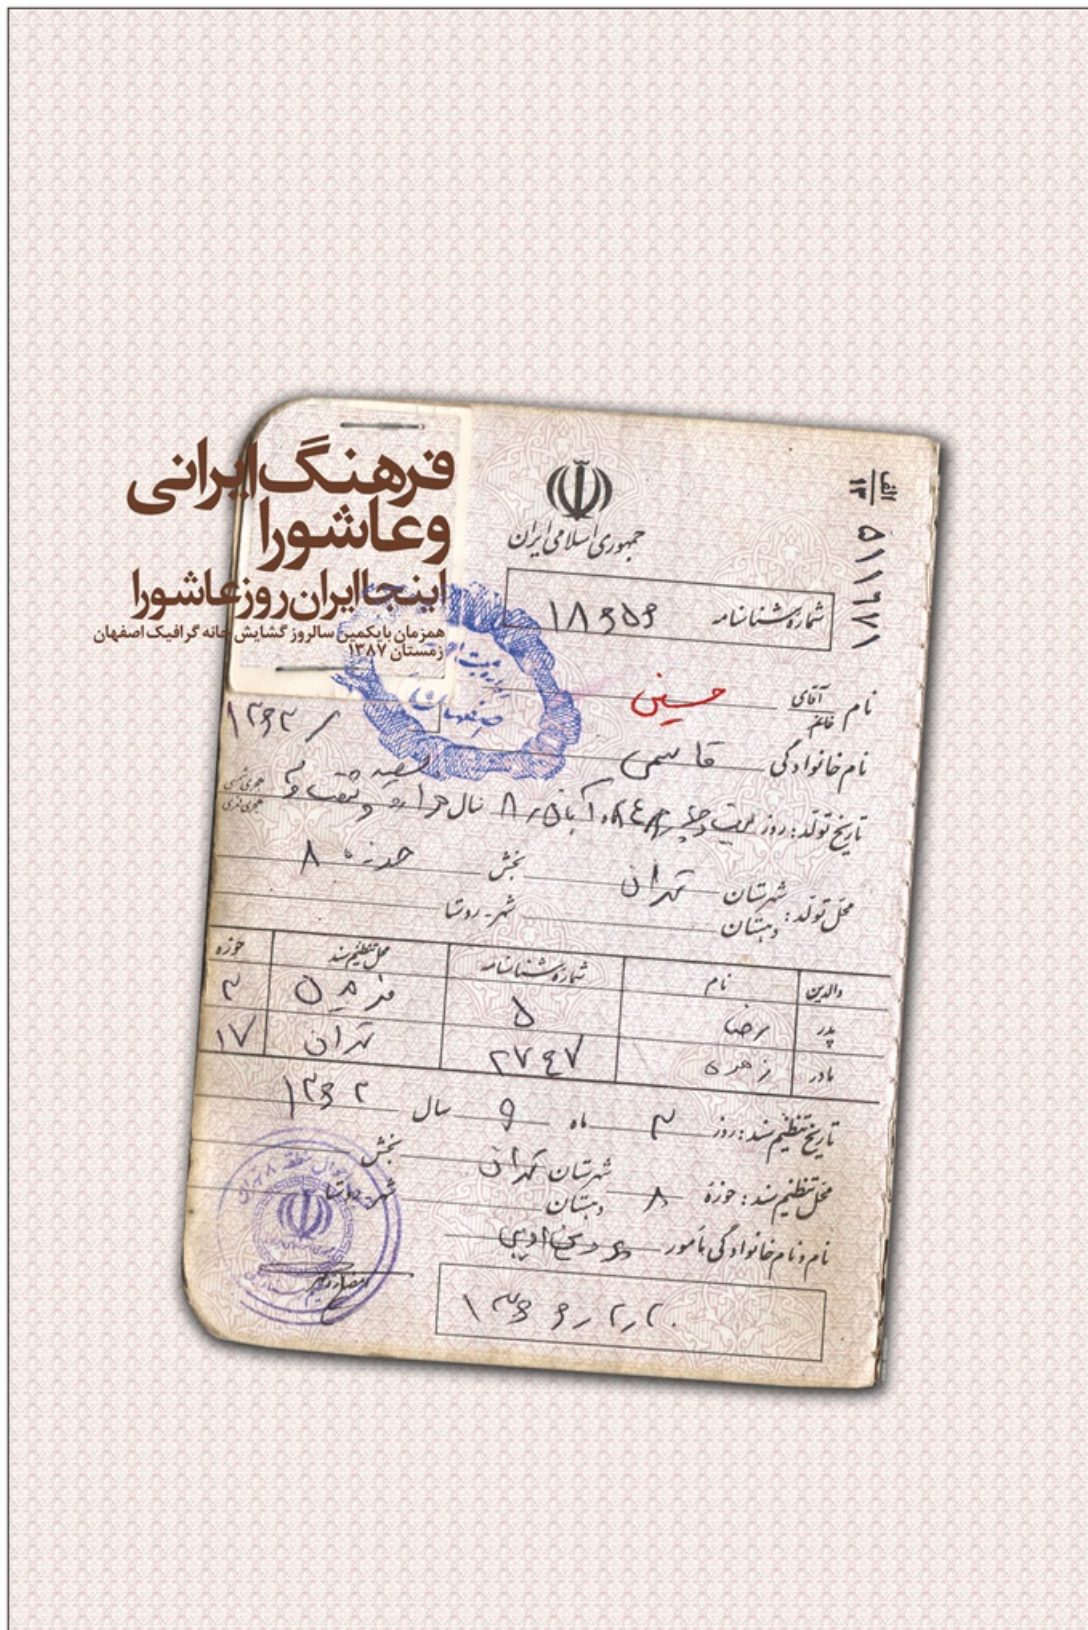 فرهنگ ایرانی
و عاشورا
اینجا ایران روز عاشورا
همزمان با یکمین سالروز گشایش خانه گرافیک اصفهان
زمستان ۱۳۸۷
الف
۱۳
۵۱۱۶۷۱
جمهوری اسلامی ایران
شماره شناسنامه ۱۸۶۵۶
نام آقای خانم حسینی
نام خانوادگی قاسمی
۱۳۶۲
تاریخ تولد: روز بیست و چهارم ماه آبان ۸ سال هزار و سیصد و شصت و دو هجری شمسی
هجری قمری
محل تولد: شهرستان تهران بخش حوزه ۸
دهستان شهر - روستا
والدین نام شماره شناسنامه محل تنظیم سند حوزه
پدر رضا ۵ ۲
مادر زهره ۲۷۴۷ تهران ۱۷
تاریخ تنظیم سند: روز ۳ ماه ۹ سال ۱۳۶۲
محل تنظیم سند: حوزه ۸ شهرستان تهران بخش
دهستان شهر - روستا
نام و نام خانوادگی مأمور